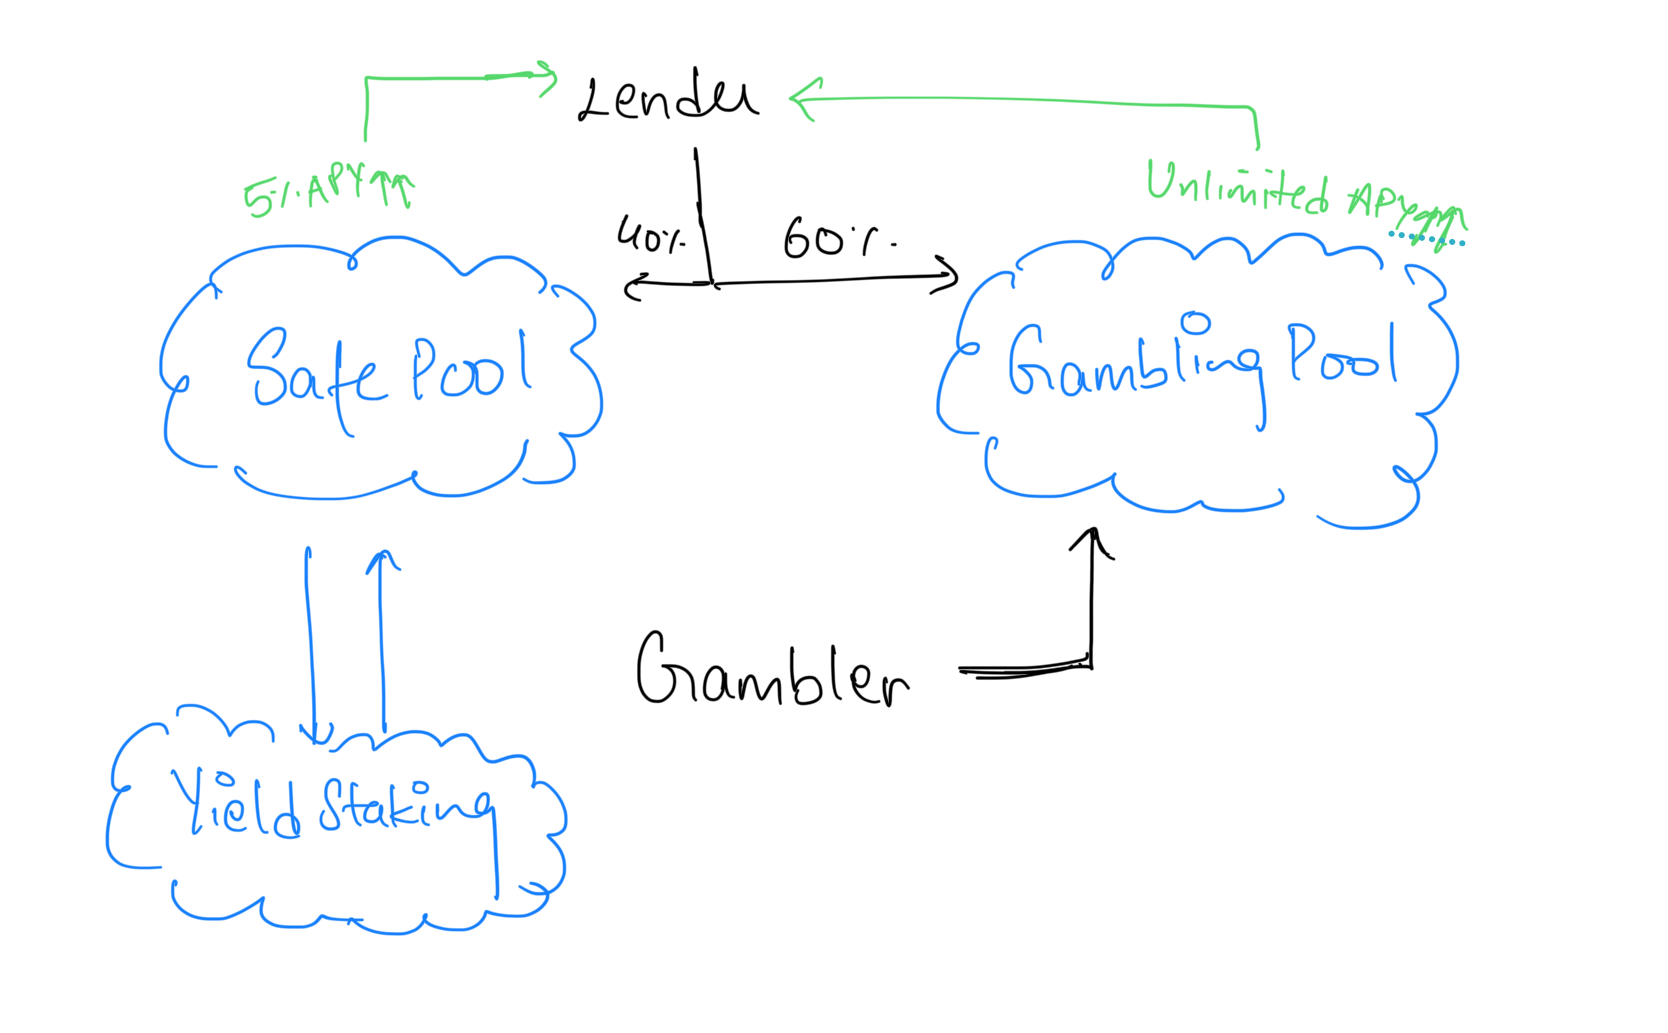 Lender
5% APY↑↑
40%
60%.
Unlimited APY↑↑↑
Safe Pool
Gambling Pool
Gambler
Yield Staking